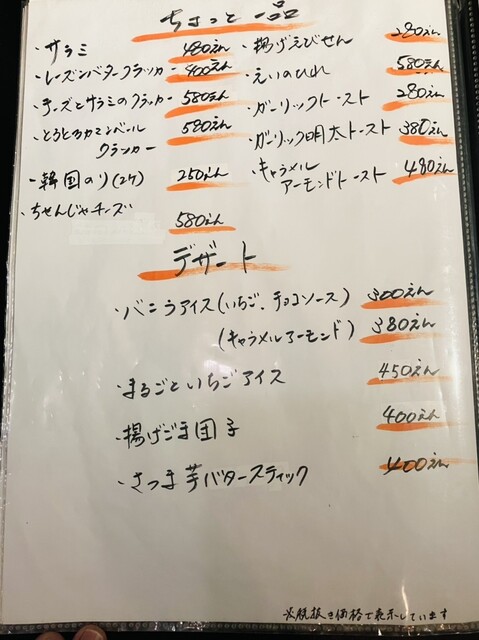 ちょっと一品
・サラミ 480えん
・レーズンバタークラッカー 400えん
・チーズとサラミのクラッカー 580えん
・とろとろカマンベール
クラッカー 580えん
・韓国のり(2ケ) 250えん
・ちゃんじゃチーズ 580えん
・揚げえびせん 280えん
・えいのひれ 580えん
・ガーリックトースト 280えん
・ガーリック明太トースト 380えん
・キャラメル
アーモンドトースト 480えん
デザート
・バニラアイス(いちご、チョコソース) 300えん
(キャラメルアーモンド) 380えん
・まるごといちごアイス 450えん
・揚げごま団子 400えん
・さつま芋バタースティック 400えん
※税抜き価格で表示しています